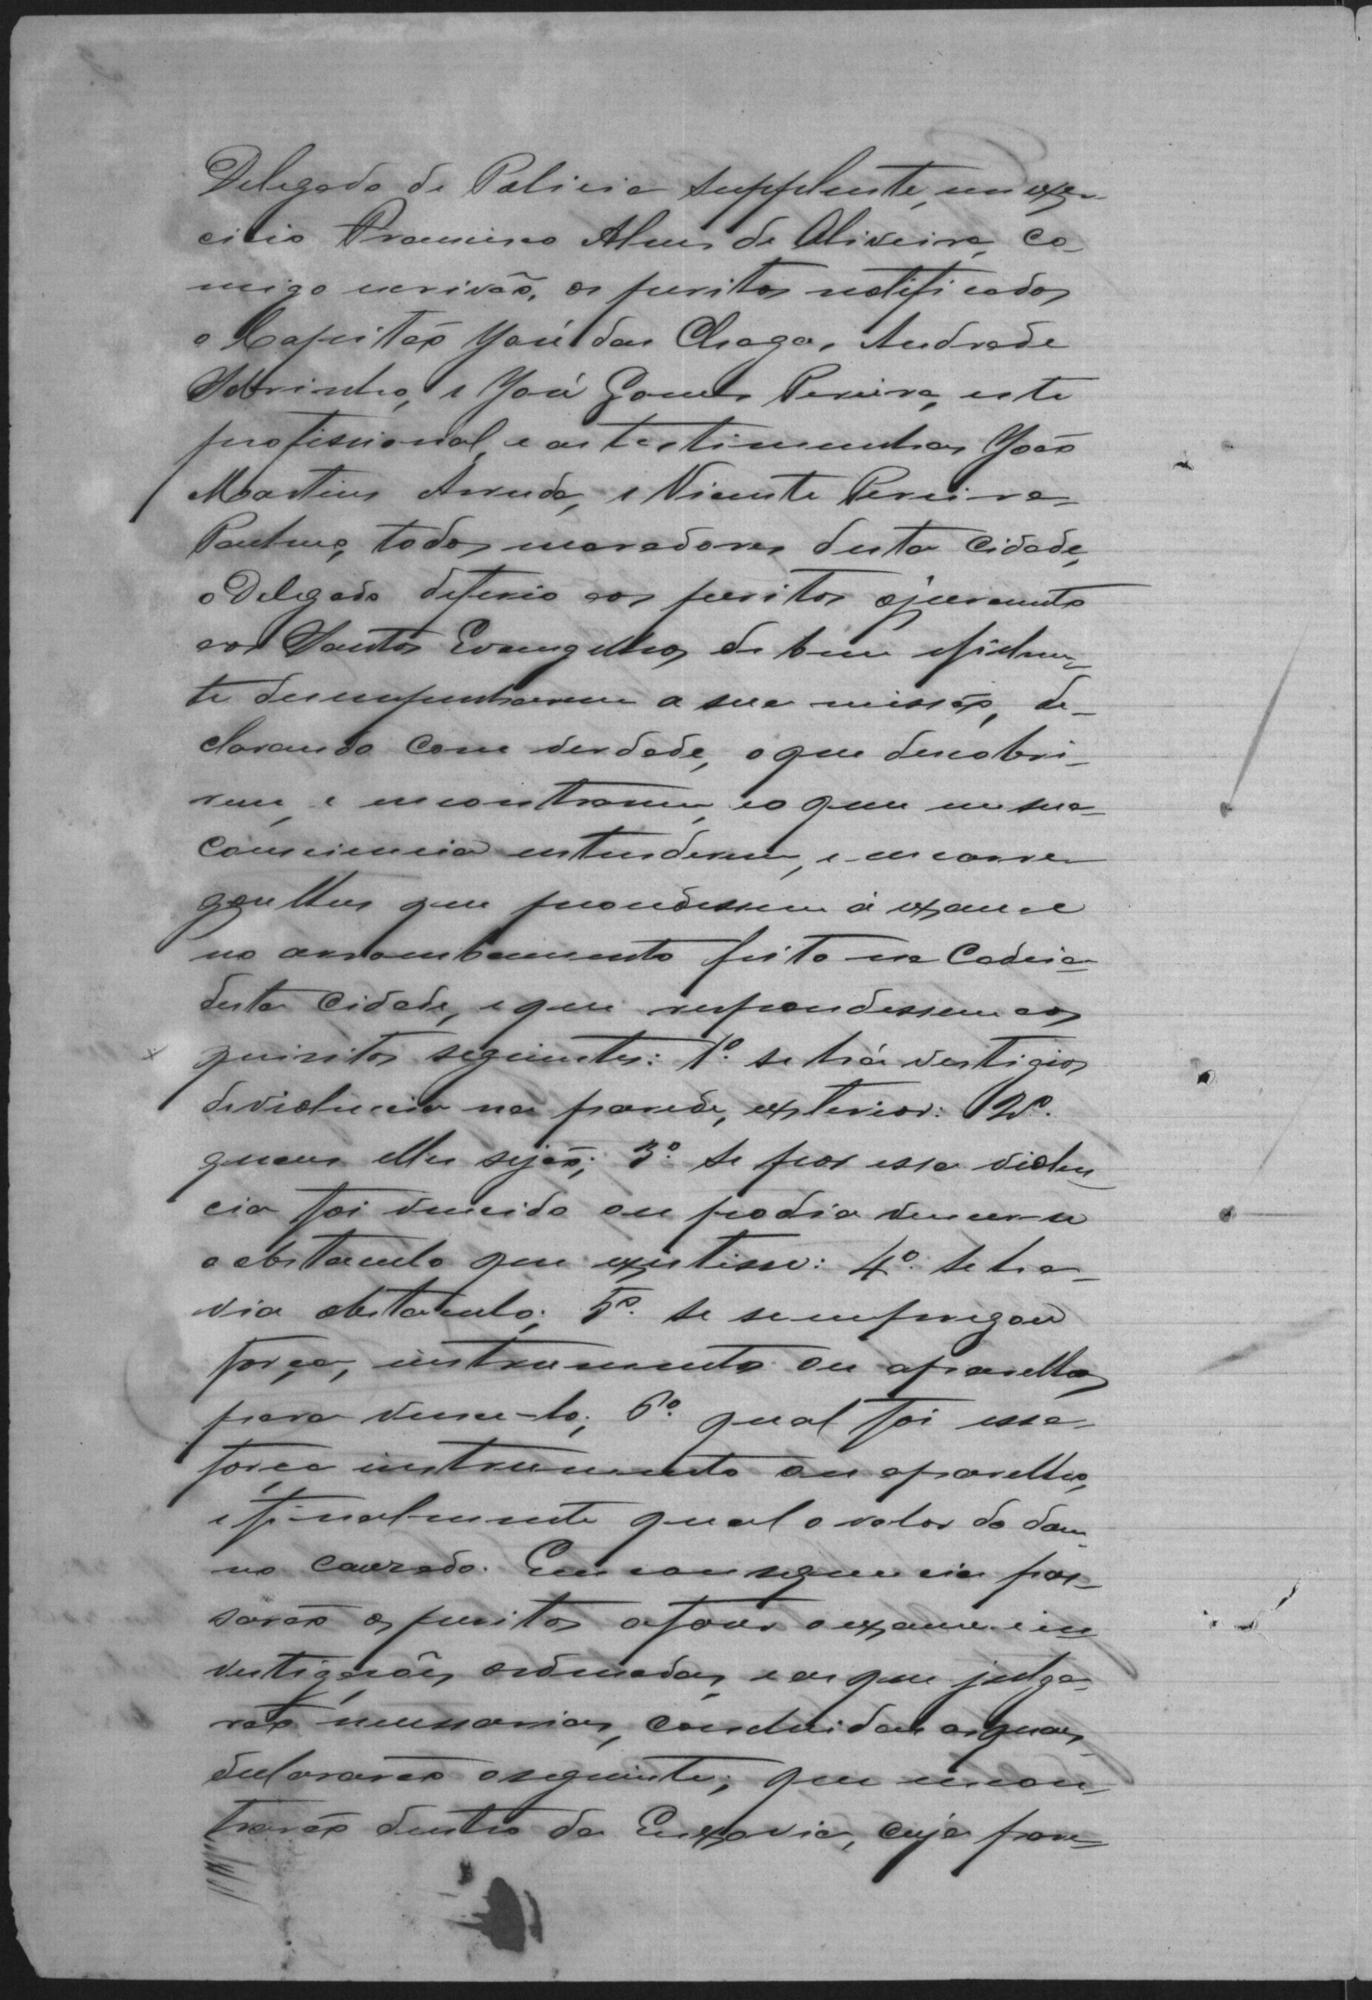 Delegado de Policia supplente, em exer-
cicio Francisco Alves de Oliveira, co-
migo escrivão, os peritos notificados
o Capitão José das Chagas Andrade
Sobrinho, e José Gomes Pereira, este
profissional, e as testimunhas João
Martins Arruda, e Vicente Pereira
todos moradores desta Cidade,
o Delegado deferio aos peritos o juramento
aos Santos Evangelhos de bem e fielmen-
te desempenharem a sua missão, de-
clarando com verdade, o que descobri-
rem, e encontrarem, e o que em sua
consciencia entenderem, e encarre
gou lhes que procedessem á exame
no arrombamento feito na Cadeia
desta Cidade, e que respondessem aos
quisitos seguintes: 1º se há vestigios
de violencia na parede, exterior: 2º
quaes elles sejão; 3º se por essa violen
cia foi vencido ou podia vencer-se
o obstaculo que existisse: 4º se ha-
via obstaculo; 5º se se empregou
força, instrumento ou aparelhos
para vence-lo; 6º qual foi essa
força instrumento ou aparelho,
e finalmente qual o valor do dam
no cauzado. Em consequencia pas-
sarão os peritos a fazer o exame e in
vestigações ordenadas, e as que julga-
rão necessarias, concluidas as quaes,
declararão o seguinte; que encon-
trarão dentro da Enxovia, cuja pare